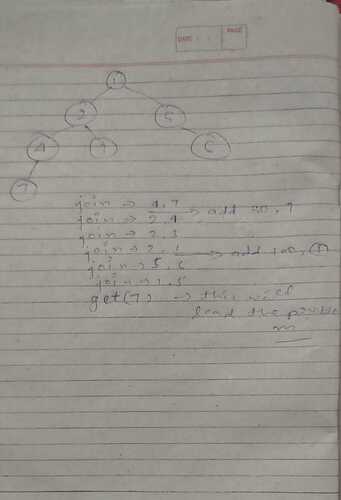 DATE
PAGE
1
2
5
4
3
6
7
join => 4, 7 → add 50, 7
join => 2, 4
join => 2, 3
join => 2, 1 → add 100, 1
join => 5, 6
join => 1, 5
get(7) → this will
lead the problem